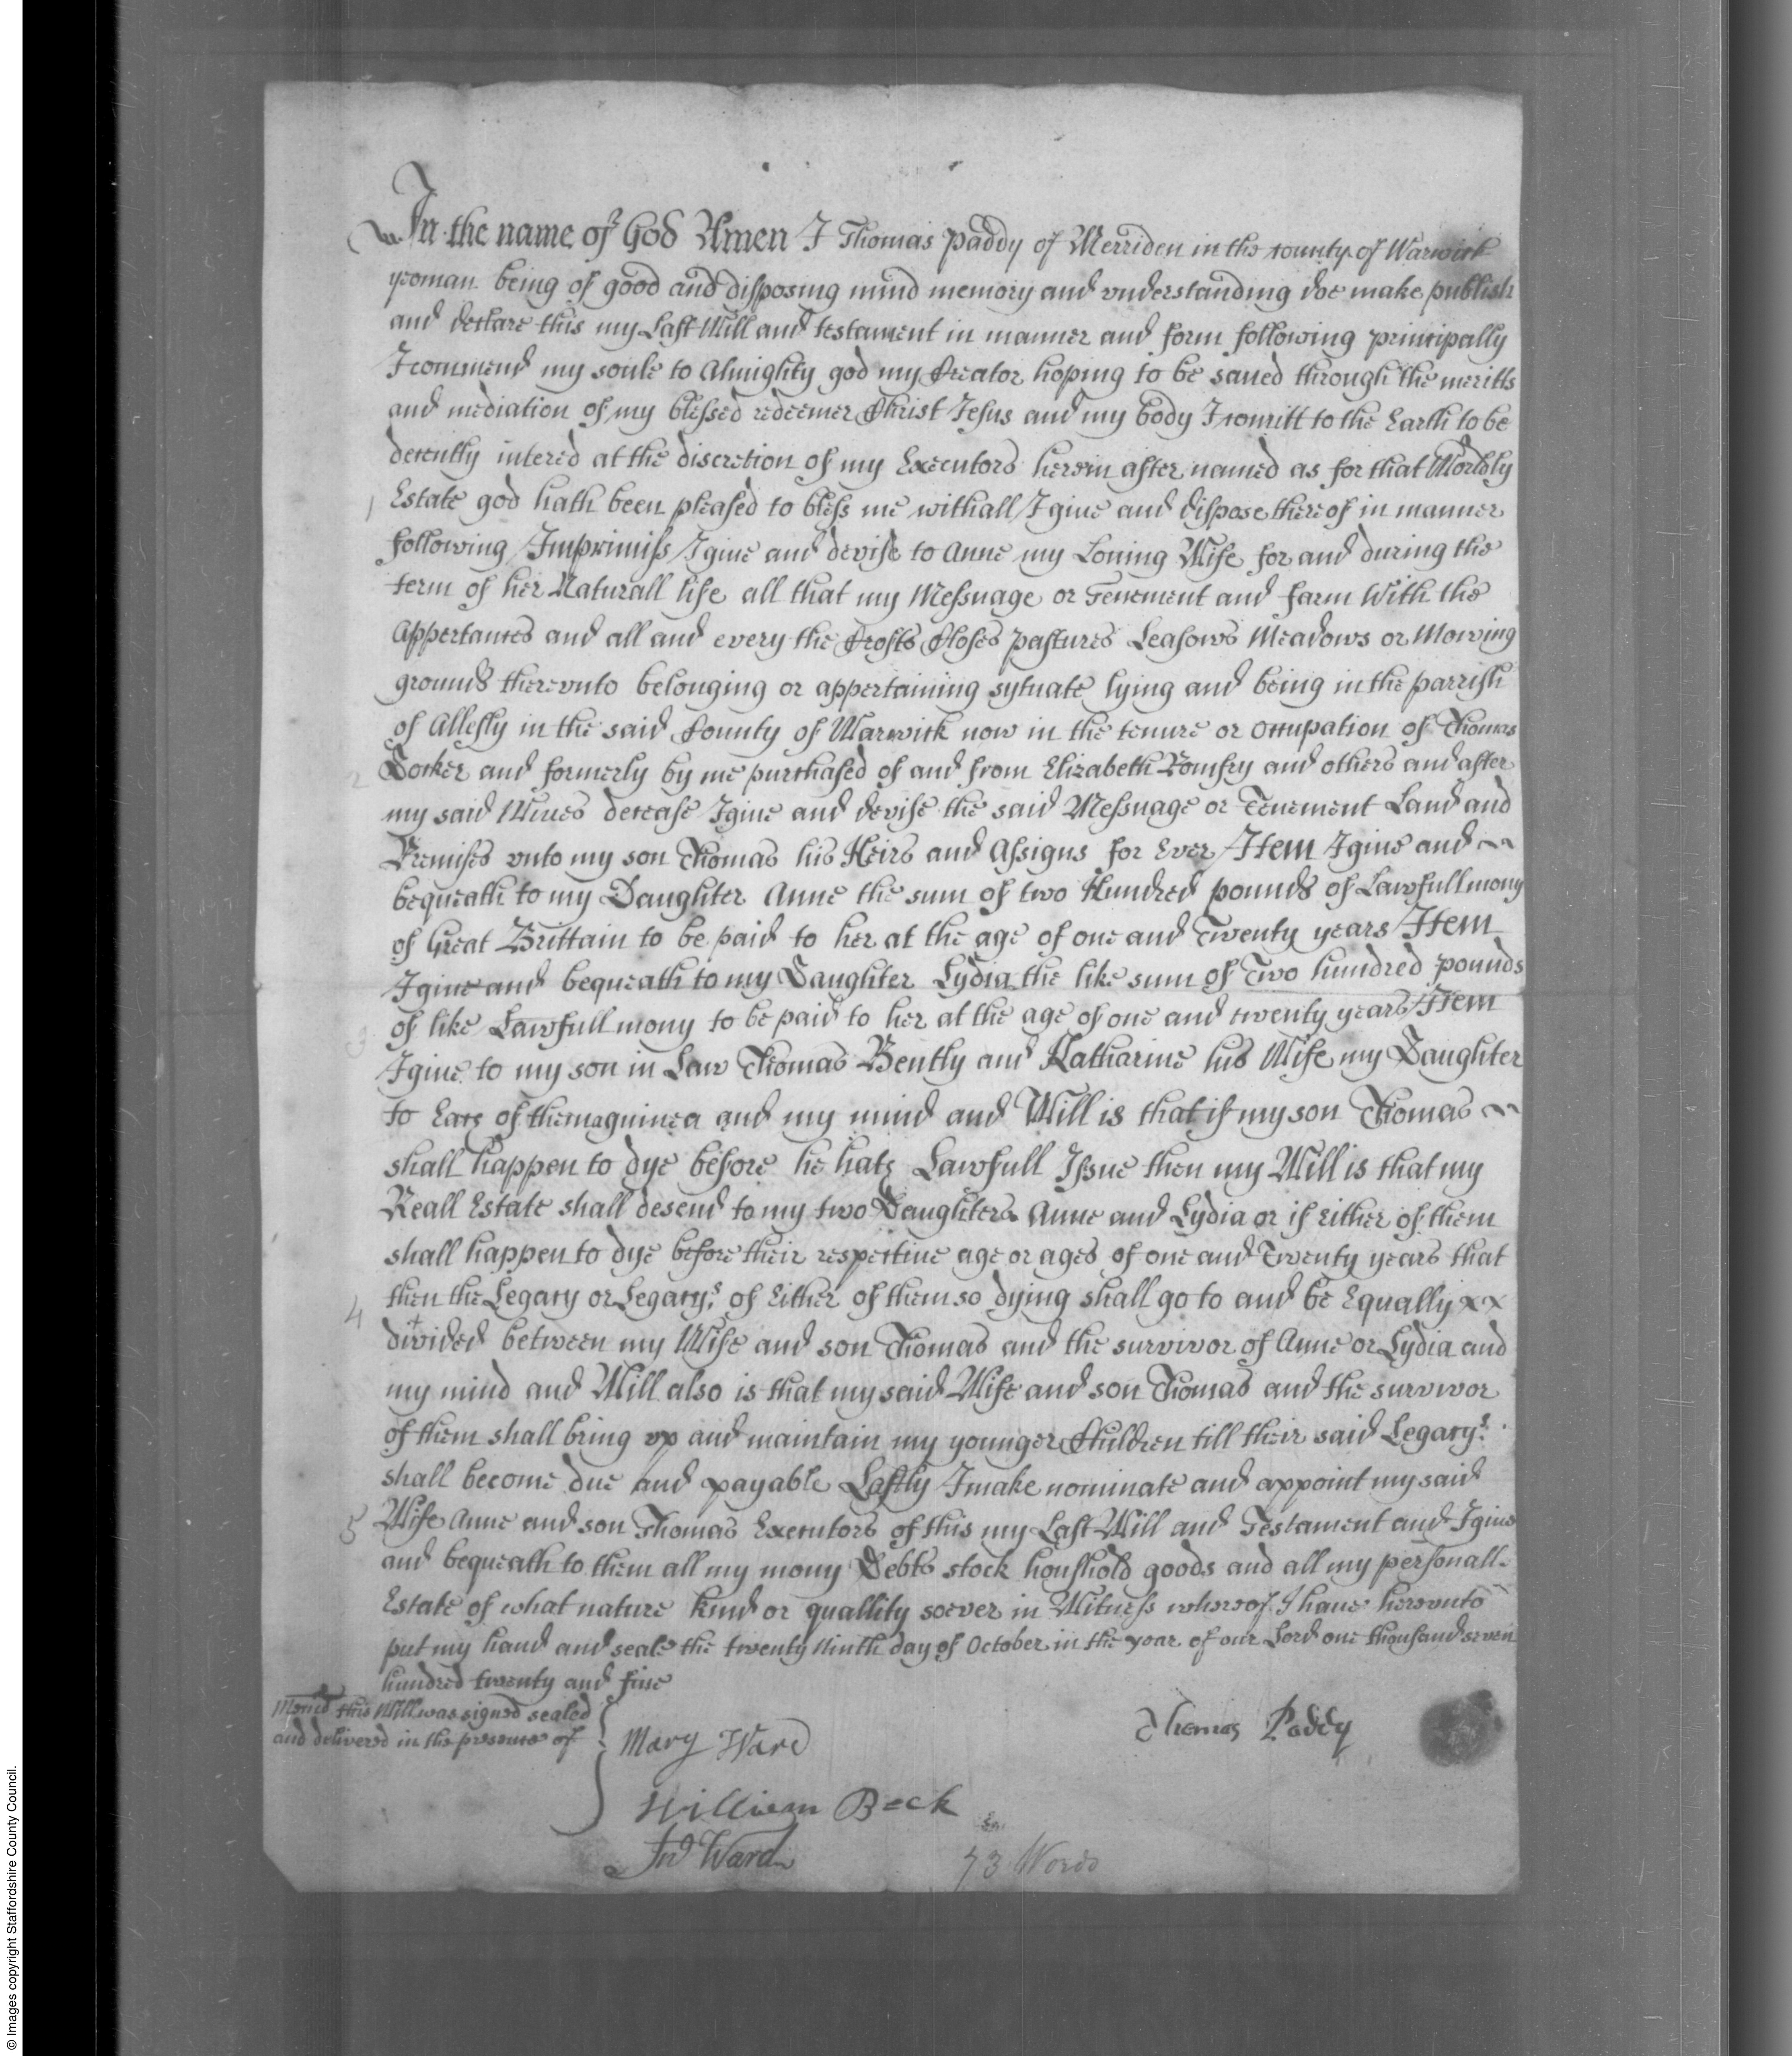 In the name of God Amen I Thomas Paddy of Merriden in the County of Warwick
yeoman being of good and disposing mind memory and vnderstanding doe make publish
and declare this my Last Will and testament in manner and form following principally
I commend my soule to Almighty god my Creator hoping to be saued through the meritts
and mediation of my blessed redeemer Christ Jesus and my body I comitt to the Earth to be
decently intered at the discretion of my Executors herein after named as for that Worldly
1 Estate god hath been pleased to bless me withall I giue and dispose thereof in manner
following Imprimiss I giue and devise to Anne my Louing Wife for and during the
term of her Naturall life all that my Messuage or Tenement and farm With the
Appertances and all and every the Crofts Closes pastures Leasows Meadows or Mowing
grounds therevnto belonging or appertaining sytuate lying and being in the parrish
of Allesly in the said County of Warwick now in the tenure or occupation of Thomas
2 and formerly by me purchased of and from Elizabeth Pomfry and others and after
my said Wiues decease I giue and devise the said Messuage or Tenement Land and
Premises vnto my son Thomas his Heirs and Assigns for Ever Item I giue and
bequeath to my Daughter Anne the sum of two Hundred pounds of Lawfull mony
of Great Brittain to be paid to her at the age of one and Twenty years Item
I giue and bequeath to my Daughter Lydia the like sum of Two hundred pounds
3 of like Lawfull mony to be paid to her at the age of one and twenty years Item
I giue to my son in Law Thomas Bently and Katharine his Wife my Daughter
to Each of them a guinea and my mind and Will is that if my son Thomas
shall happen to dye before he hath Lawfull Issue then my Will is that my
Reall Estate shall desend to my two Daughters Anne and Lydia or if Either of them
shall happen to dye before their respectiue age or ages of one and Twenty years that
4 then the Legacy or Legacy:s of Either of them so dying shall go to and be Equally
divided between my Wife and son Thomas and the survivor of Anne or Lydia and
my mind and Will also is that my said Wife and son Thomas and the survivor
of them shall bring vp and maintain my younger Children till their said Legacy:s
shall become due and payable Lastly I make nominate and appoint my said
5 Wife Anne and son Thomas Executors of this my Last Will and Testament and I giue
and bequeath to them all my mony Debts stock houshold goods and all my personall
Estate of what nature kind or quallity soever in Witness whereof I haue herevnto
put my hand and seale the twenty Ninth day of October in the year of our Lord one thousand seven
hundred twenty and fiue
Mem:d this Will was signed sealed
and delivered in the presence of
Thomas Paddy
Mary Ward
William Beck
Jno Ward
73 Words
© Images copyright Staffordshire County Council.